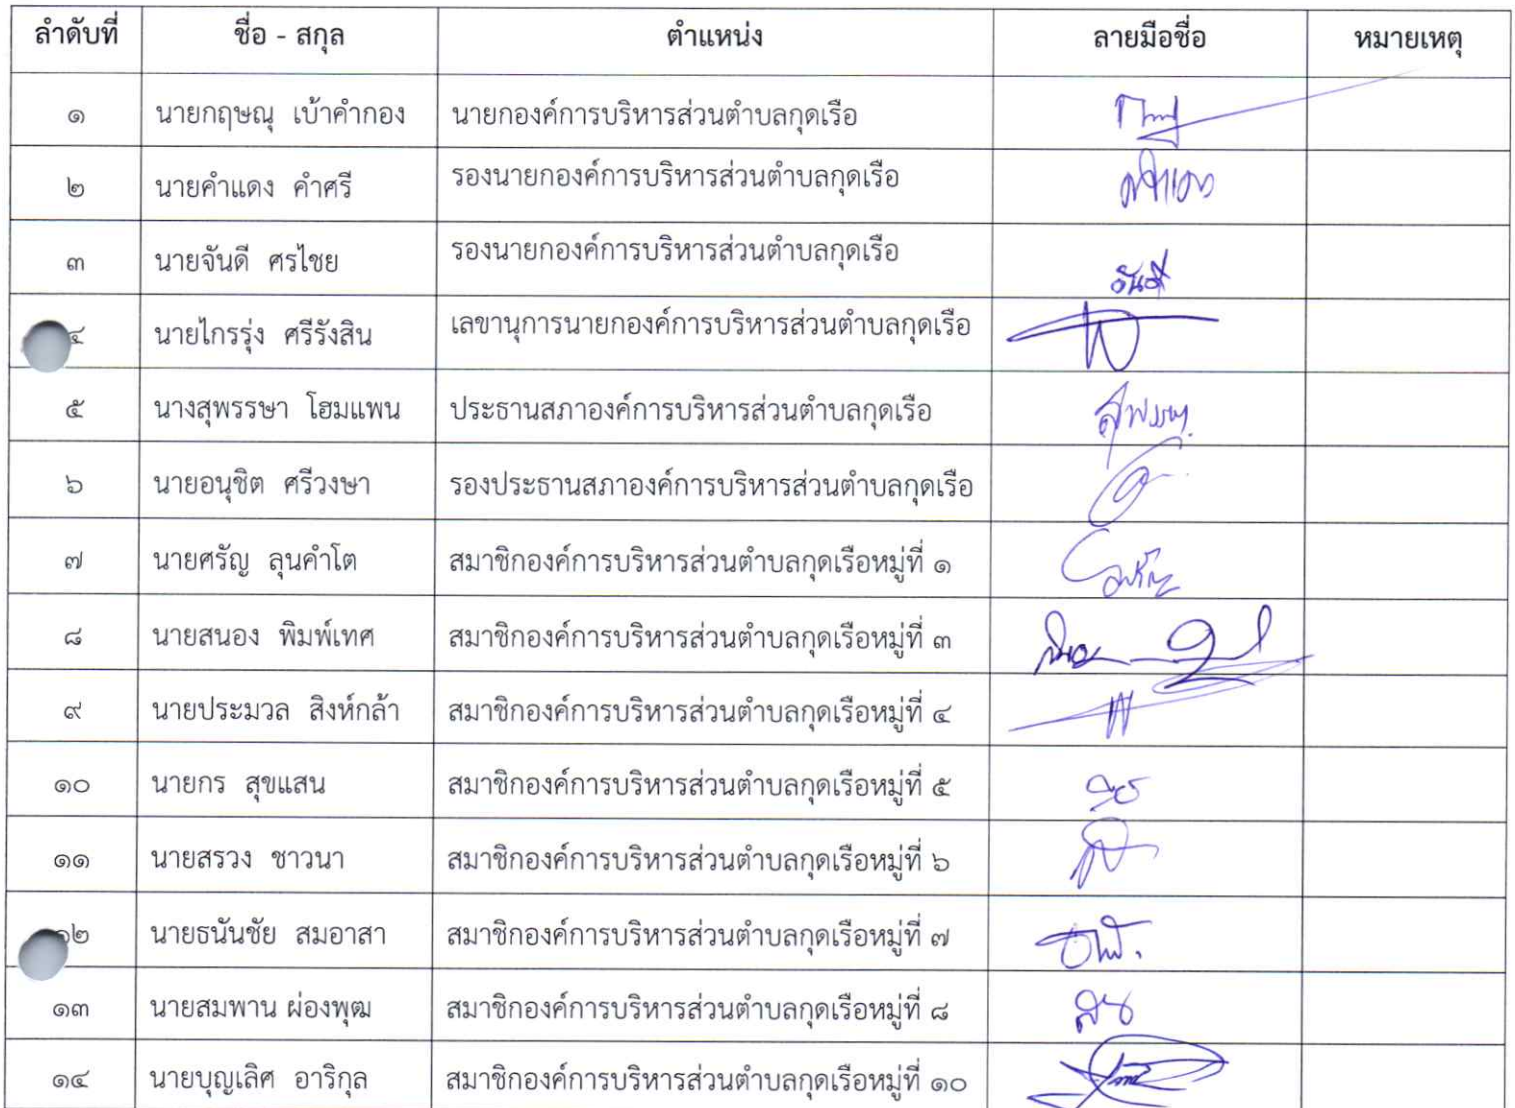 ลำดับที่ ชื่อ - สกุล ตำแหน่ง ลายมือชื่อ หมายเหตุ
๑ นายกฤษณุ เบ้าคำกอง นายกองค์การบริหารส่วนตำบลกุดเรือ
๒ นายคำแดง คำศรี รองนายกองค์การบริหารส่วนตำบลกุดเรือ
๓ นายจันดี ศรไชย รองนายกองค์การบริหารส่วนตำบลกุดเรือ จันดี
๔ นายไกรรุ่ง ศรีรังสิน เลขานุการนายกองค์การบริหารส่วนตำบลกุดเรือ
๕ นางสุพรรษา โฮมแพน ประธานสภาองค์การบริหารส่วนตำบลกุดเรือ
๖ นายอนุชิต ศรีวงษา รองประธานสภาองค์การบริหารส่วนตำบลกุดเรือ
๗ นายศรัญ ลุนคำโต สมาชิกองค์การบริหารส่วนตำบลกุดเรือหมู่ที่ ๑
๘ นายสนอง พิมพ์เทศ สมาชิกองค์การบริหารส่วนตำบลกุดเรือหมู่ที่ ๓
๙ นายประมวล สิงห์กล้า สมาชิกองค์การบริหารส่วนตำบลกุดเรือหมู่ที่ ๔
๑๐ นายกร สุขแสน สมาชิกองค์การบริหารส่วนตำบลกุดเรือหมู่ที่ ๕
๑๑ นายสรวง ชาวนา สมาชิกองค์การบริหารส่วนตำบลกุดเรือหมู่ที่ ๖
๑๒ นายธนันชัย สมอาสา สมาชิกองค์การบริหารส่วนตำบลกุดเรือหมู่ที่ ๗
๑๓ นายสมพาน ผ่องพุฒ สมาชิกองค์การบริหารส่วนตำบลกุดเรือหมู่ที่ ๘
๑๔ นายบุญเลิศ อาริกุล สมาชิกองค์การบริหารส่วนตำบลกุดเรือหมู่ที่ ๑๐